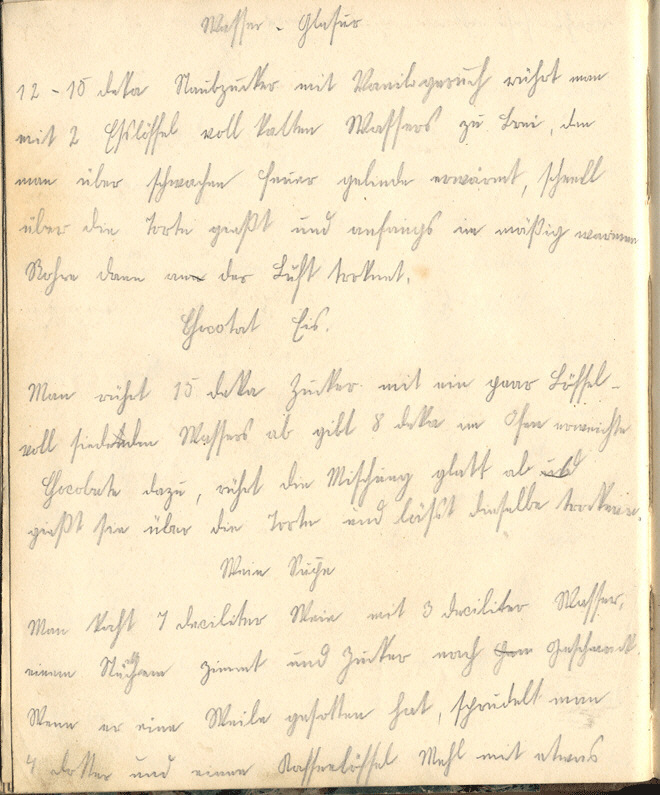 Wasser - Glasur
12 - 15 deka Staubzucker mit Vanilegeruch rührt man
mit 2 Eßlöffel voll kalten Wassers zu Brei, den
man über schwachen Feuer gelinde erwärmt, schnell
über die Torte gießt und anfangs im mäßig warmen
Rohre dann an der Luft troknet.
Chocolat Eis.
Man rührt 15 deka Zucker mit ein paar Löffel-
voll siedenden Wassers ab gibt 8 deka im Ofen erweichte
Chocolate dazu, rührt die Mischung glatt ab und
gießt sie über die Torte und läßt dieselbe trocknen.
Wein Suppe
Man kocht 7 deciliter Wein mit 3 deciliter Wasser,
einem Stückchen Zimmt und Zucker nach Geschmack.
Wenn er eine Weile gesotten hat, sprudelt man
4 dotter und einen Kaffeelöffel Mehl mit etwas